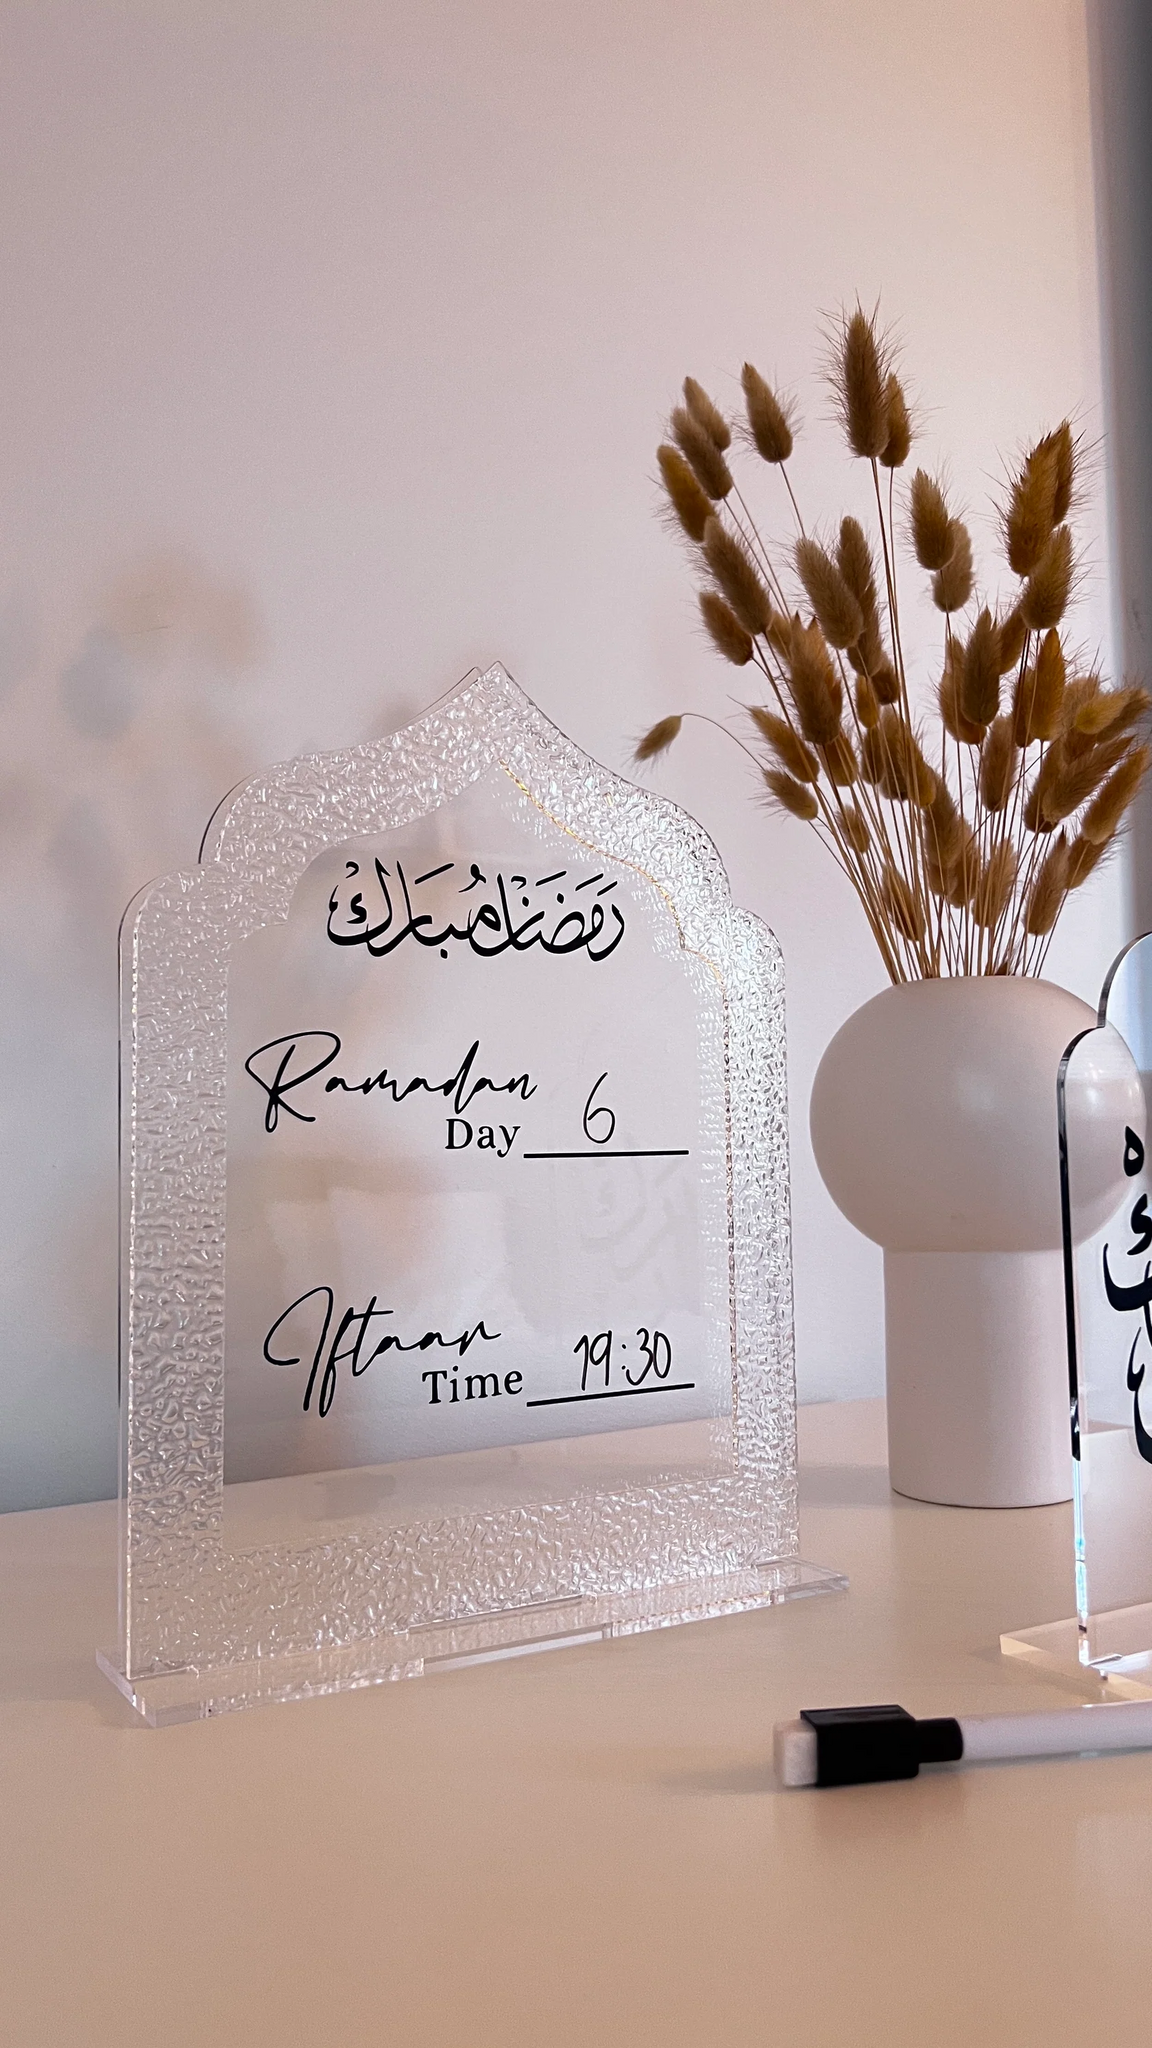 رَمَضَان مُبَارَك
Ramadan
Day 6
Iftaar
Time 19:30